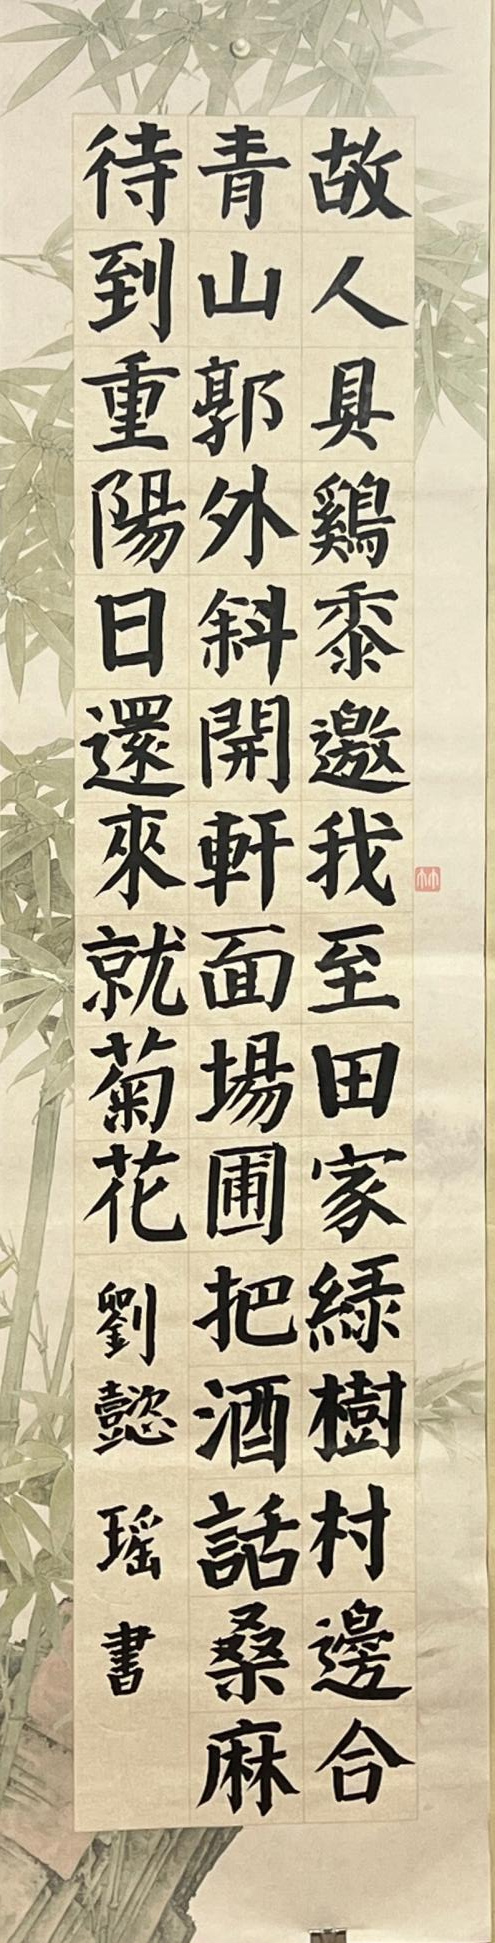 故人具鷄黍邀我至田家綠樹村邊合
青山郭外斜開軒面場圃把酒話桑麻
待到重陽日還來就菊花劉懿瑶書